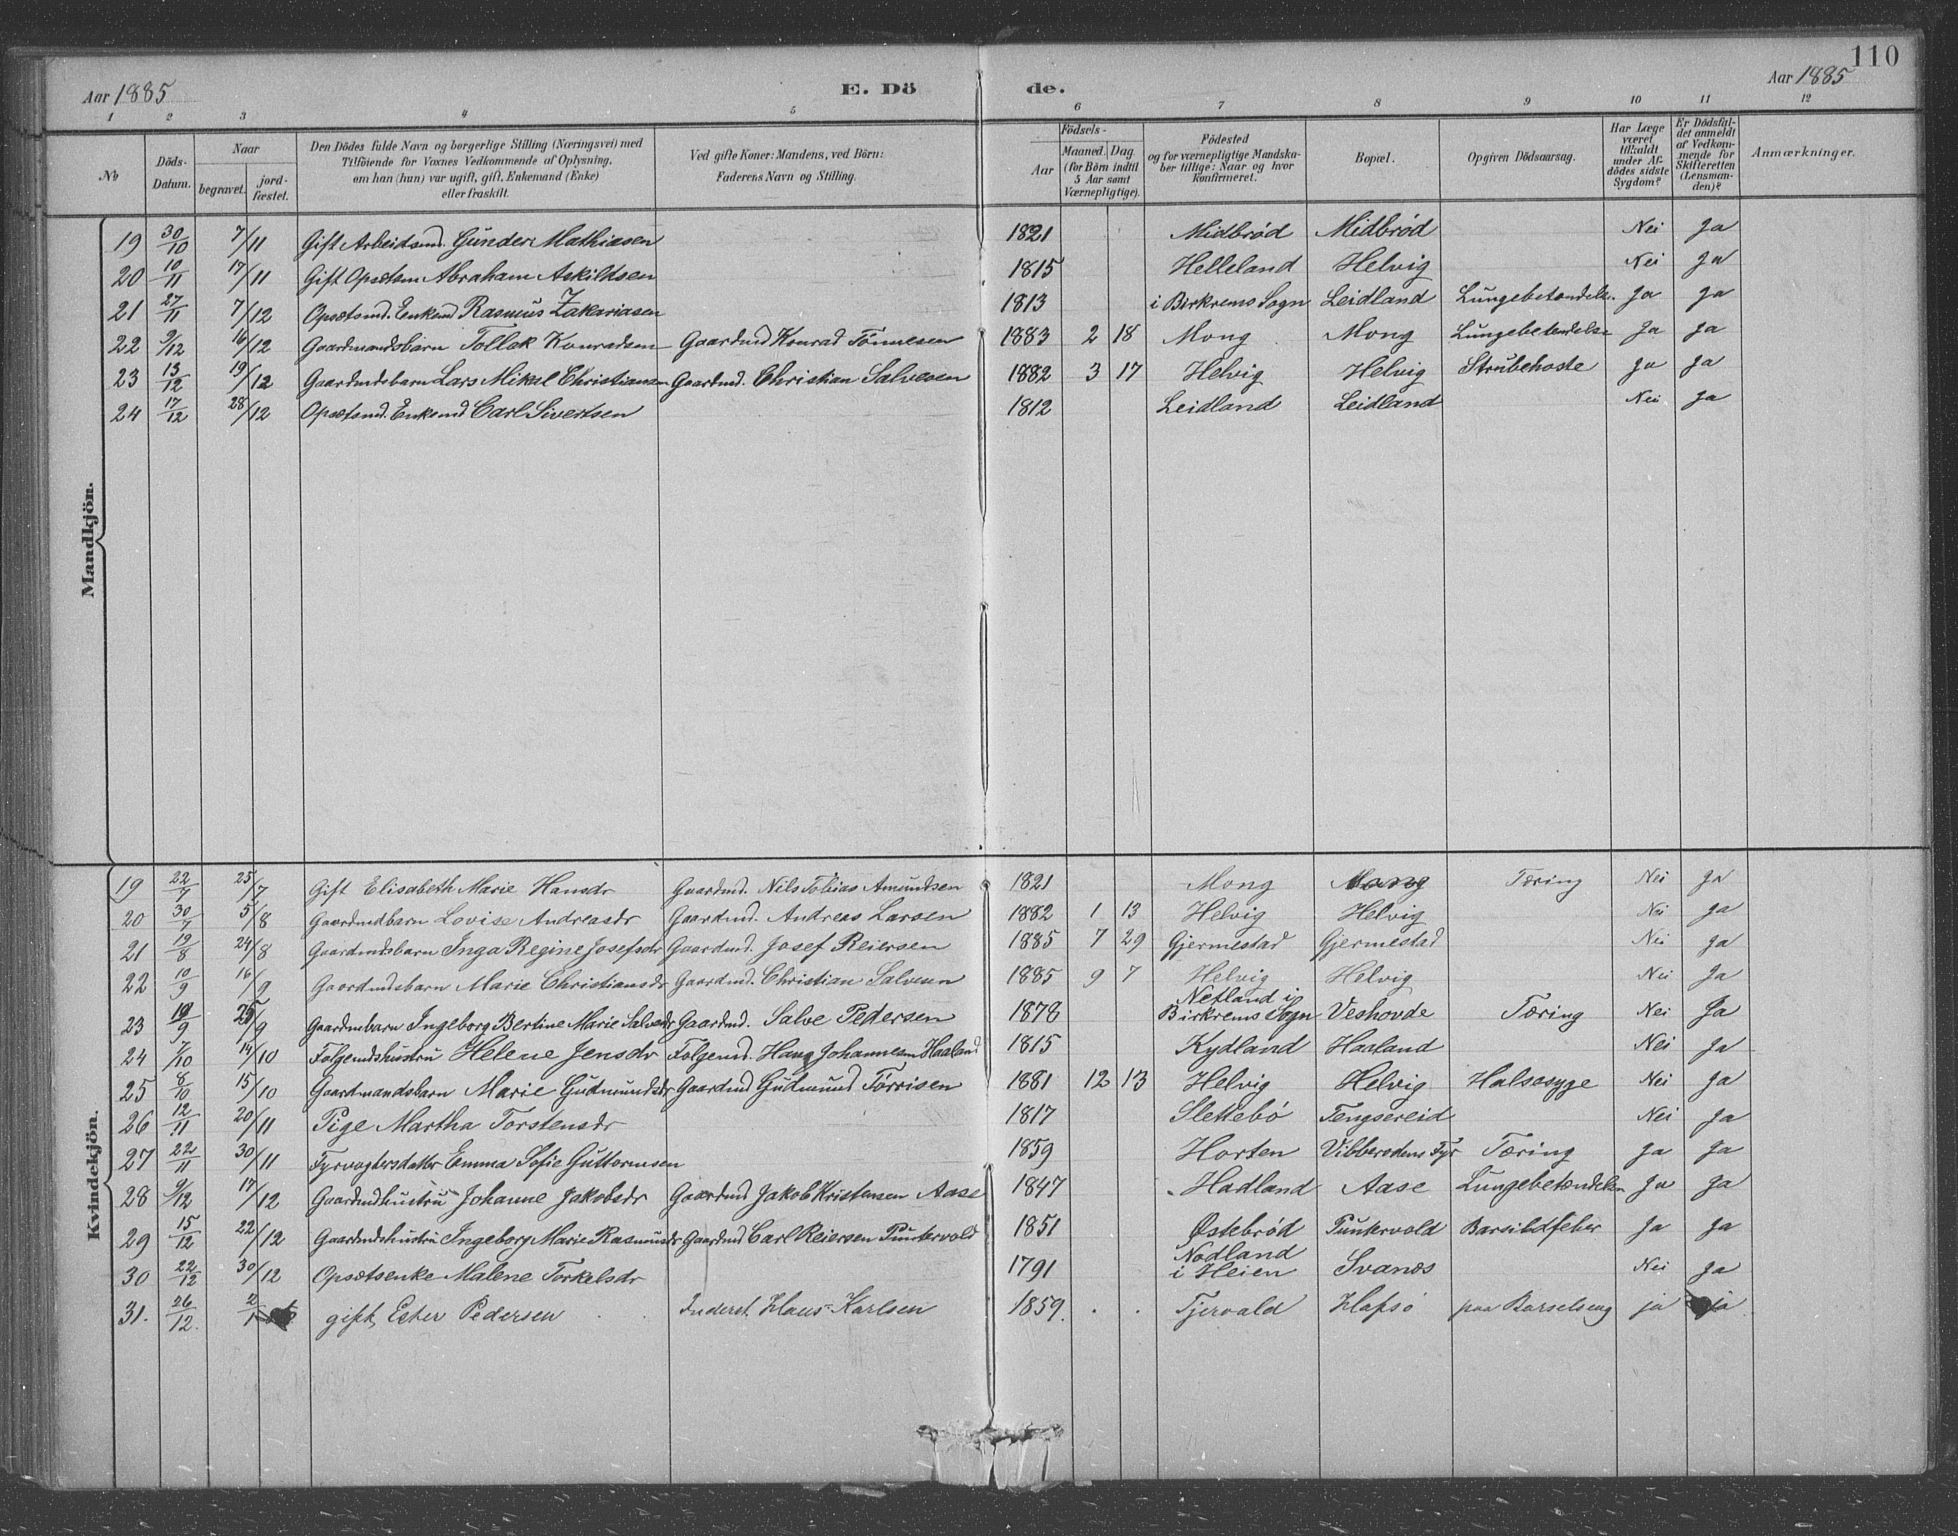 110
Aar 1885 E. Dö de. Aar 1885
1 2 3 4 5 6 7 8 9 10 11 12
№ Döds-Datum. Naar begravet. jord-fæstet. Den Dödes fulde Navn og borgerlige Stilling (Næringsvei) med Tilföiende for Voxnes Vedkommende af Oplysning, om han (hun) var ugift, gift, Enkemand (Enke) eller fraskilt. Ved gifte Koner: Mandens, ved Börn: Faderens Navn og Stilling. Födsels- Aar Maaned. Dag (for Börn indtil 5 Aar samt Værnepligtige). Födested og for værnepligtige Mandska-ber tillige: Naar og hvor konfirmeret. Bopæl. Opgiven Dödsaarsag. Har Læge været tilkaldt under Af-dödes sidste Sygdom? Er Dödsfal-det anmeldt af Vedkom-mende for Skifteretten (Lensman-den)? Anmærkninger.
Mandkjön.
19 30/10 7/11 Gift Arbeidsmd. Gunder Mathiasen 1821 Midbrød Midbrød Nei Ja
20 10/11 17/11 Gift Opsætsm Abraham Askildsen 1815 Helleland Helvig Nei Ja
21 27/11 7/12 Opsætsmd. Enkemd Rasmus Zakariasen 1813 i Birkrems Sogn Leidland Lungebetændels. Ja Ja
22 9/12 16/12 Gaardmandsbarn Tollak Konradsen Gaardmd Konrad Tønnesen 1883 2 18 Mong Mong Lungebetændelse Ja Ja
23 13/12 19/12 Gaardmdsbarn Lars Mikal Christiansen Gaardmd. Christian Salvesen 1882 3 17 Helvig Helvig Strubehoste Ja Ja
24 17/12 28/12 Opsætsmd. Enkemd Carl Sivertsen 1812 Leidland Leidland Nei Ja
Kvindekjön.
19 22/7 25/7 Gift Elisabeth Marie Hansdr Gaardmd. Nils Tobias Amundsen 1821 Mong Mong Tæring Nei Ja
20 30/7 5/8 Gaardmdbarn Lovise Andreasdr Gaardmd. Andreas Larsen 1882 1 13 Helvig Helvig Nei Ja
21 19/8 24/8 Gaardmdsbarn Inga Regine Josefsdr Gaardmd. Josef Reiersen 1885 7 29 Gjermestad Gjermestad Nei Ja
22 10/9 16/9 Gaardmdsbarn Marie Christiansdr Gaardmd. Christian Salvesen 1885 9 7 Helvig Helvig Nei Ja
23 19/9 25/9 Gaardmbarn Ingeborg Bertine Marie Salvesdr Gaardmd. Salve Pedersen 1878 Netland i Birkrems Sogn Veshovde Tæring Nei Ja
24 7/10 14/10 Følgemdshustru Helene Jensdr Følgemd. Hans Johannesen Haaland 1815 Kydland Haaland Nei Ja
25 8/10 15/10 Gaardmandsbarn Marie Gudmundsdr Gaardmd Gudmund Torrisen 1881 12 13 Helvig Helvig Halssyge Nei Ja
26 12/11 20/11 Pige Martha Torstensdr 1817 Slettebø Tengsereid Nei Ja
27 22/11 30/11 Fyrvogtersdatter Emma Sofie Guttormsen 1859 Horten Vibberodens Fyr Tæring Ja Ja
28 9/12 17/12 Gaardmdhustru Johanne Jakobsdr Gaardmd Jakob Kristensen Aase 1847 Hadland Aase Lungebetændelse Ja Ja
29 15/12 22/12 Gaardmdshustru Ingeborg Marie Rasmusdr Gaardmd Carl Reiersen Puntervold 1851 Østebrød Puntervold Barsildfeber Ja Ja
30 22/12 30/12 Opsætsenke Malene Torkelsdr 1791 Nodland i Heien Svanes Nei Ja
31. 26/12. 2/1 gift, Ester Pedersen Inderst Hans Karlsen 1859. Tjervald Hafsø paa Barselseng ja ja